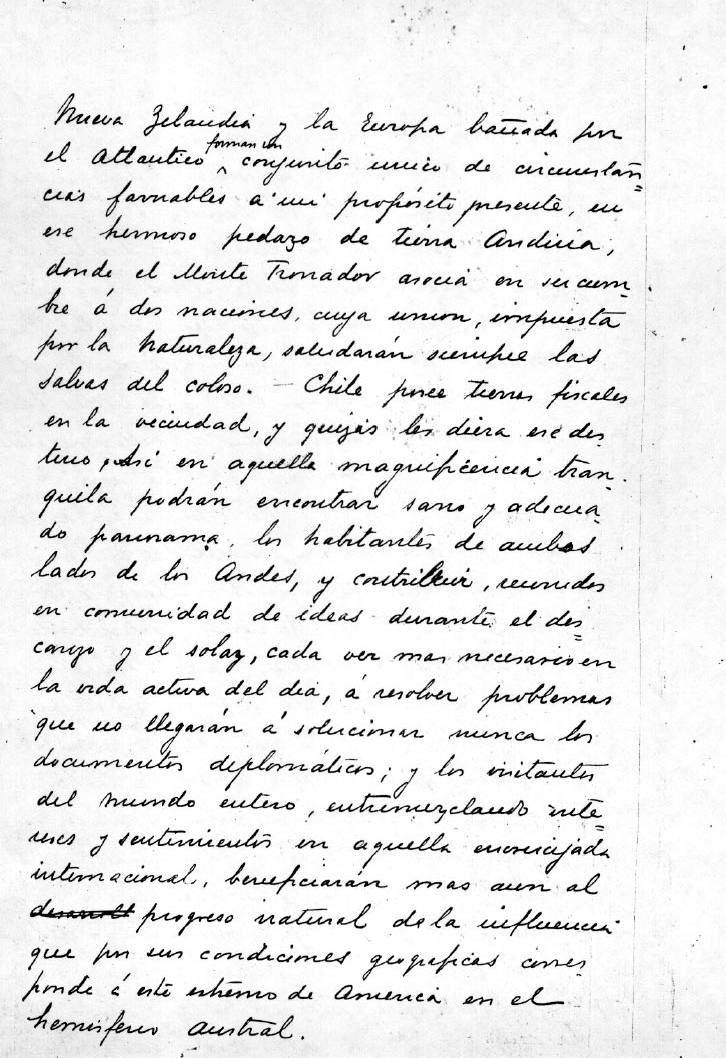 Nueva Zelandia y la Europa bañada por
el Atlantico forman un conjunto unico de circunstan=
cias favorables a mi propósito presente, en
ese hermoso pedazo de tierra Andina,
donde el Monte Tronador asocia en su cum-
bre á dos naciones, cuya union, impuesta
por la Naturaleza, saludarán siempre las
salvas del coloso. – Chile posee tierras fiscales
en la vecindad, y quizás les diera ese des
tino. Asi en aquella magnificencia tran-
quila podrán encontrar sano y adecua-
do panorama, los habitantes de ambos
lados de los Andes, y contribuir, reunidos
en comunidad de ideas durante el des=
canso y el solaz, cada vez mas necesario en
la vida activa del dia, á resolver problemas
que no llegarán á solucionar nunca los
documentos diplomáticos; y los visitantes
del mundo entero, entremezclando inte=
reses y sentimientos en aquella encrucijada
internacional, beneficiarán mas aun al
progreso natural de la influencia
que por sus condiciones geograficas corres
ponde á este extremo de America en el
hemisferio austral.